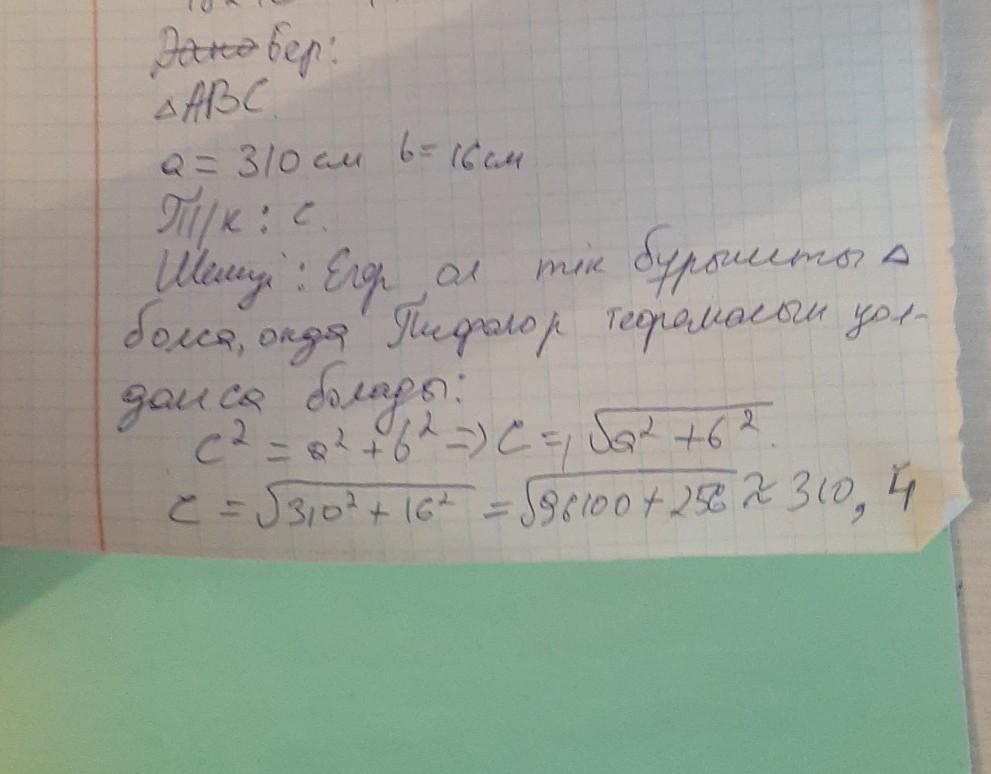 бер:
△ABC.
a = 310 см b = 16 см
Т/к : c.
Шешуі : Егер ол тік бұрышты △
болса, онда Пифагор теоремасын қол-
данса болады:
c² = a² + b² => c = √a² + b².
c = √310² + 16² = √96100 + 256 ≈ 310,4